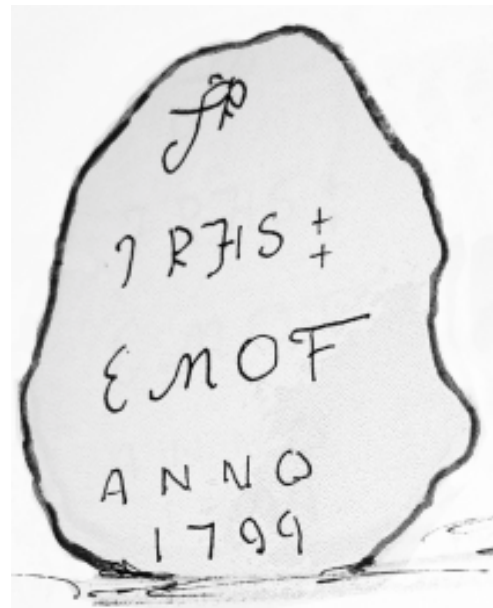 J R H S ‡
E M O F
A N N O
1799